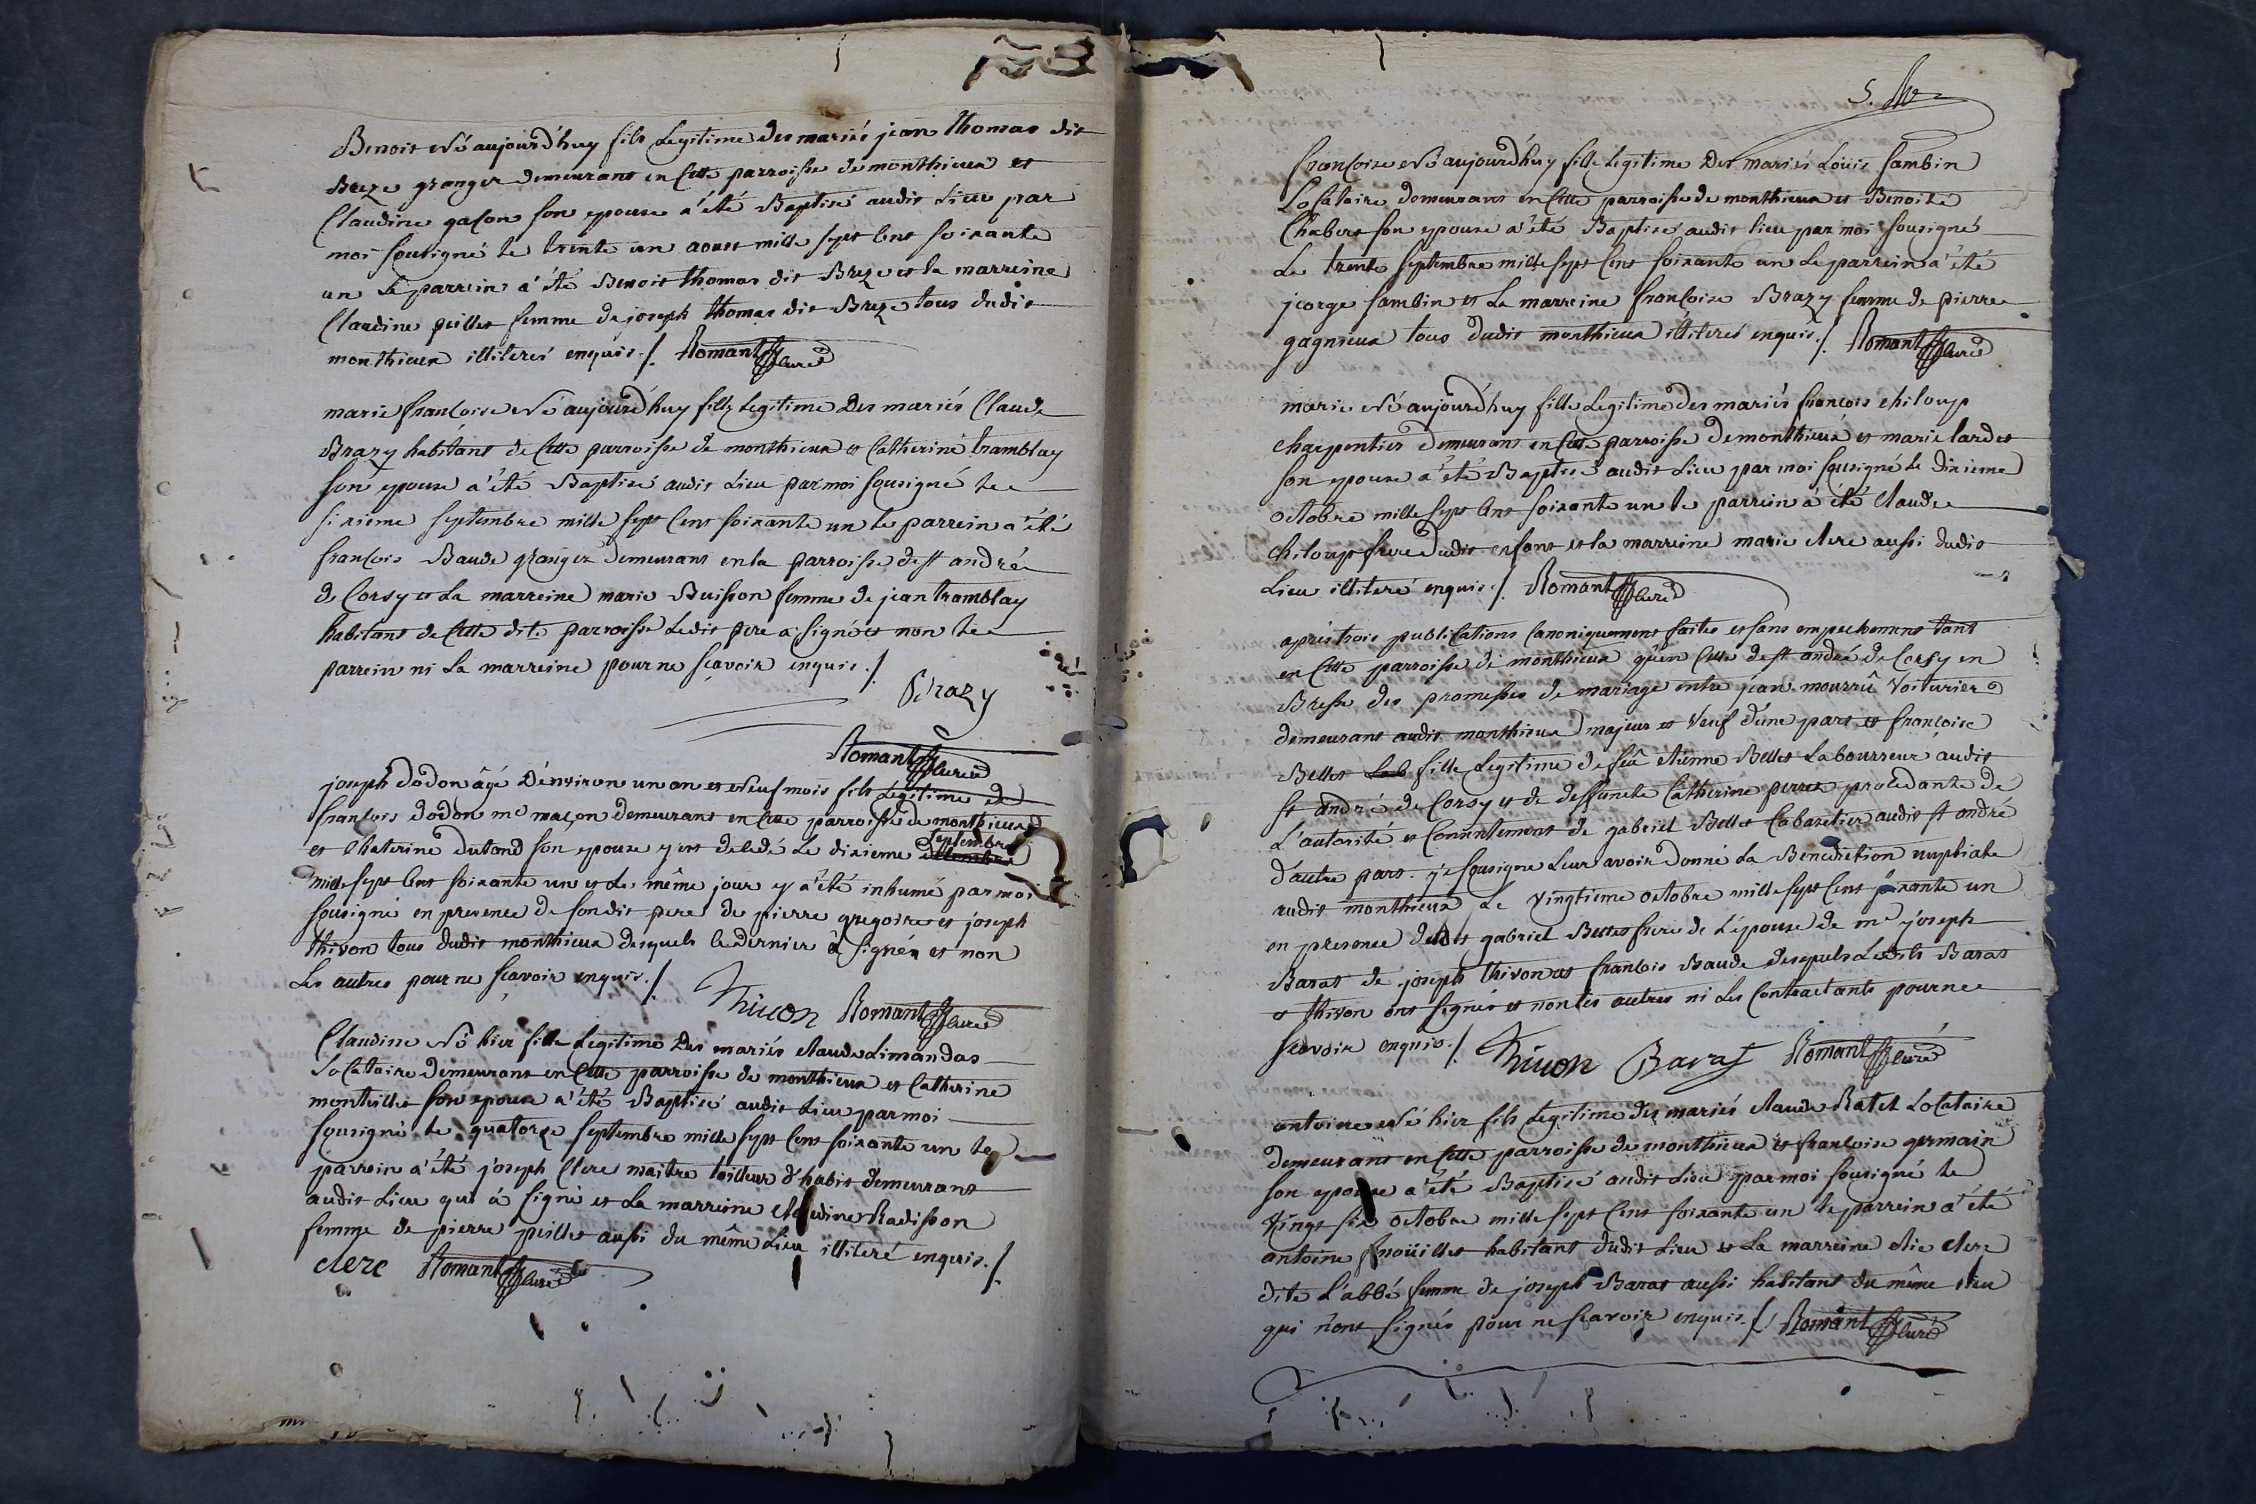 Benoit né aujourd'huy fils Legitime des mariés jean thomas dit
Breze granger demeurant en Cette parroisse de monthieux et
Claudine gacon son epouse a été Baptisé audit Lieu par
moi sousigné le trente un aoust mille sept Cent soixante
un Le parrein a été Benoit thomas dit Breze et la marreine
Claudine peillet femme de joseph thomas dit Breze tous dudit
monthieux illiterés enquis ./. Romant Curé
marie francoise né aujourd'huy fille Legitime Des mariés Claude
Brazy habitant de Cette parroisse de monthieux et Catherine tramblay
son epouse a été Baptisé audit Lieu par moi sousigné le
sixieme septembre mille sept Cent soixante un le parrein a été
francois Baude granger demeurant en la parroisse de st andré
de Corsy et La marreine marie Buisson femme de jean tramblay
habitant de Cette dite parroisse Ledit pere a signé et non le
parrein ni La marreine pour ne sçavoir enquis ./.
Brazy
Romant Curé
joseph dodon âgé D'environ un an et neuf mois fils Legitime de
francois dodon me maçon demeurant en Cette parroisse de monthieux
et Chaterine dutand son epouse y est deledé Le dixieme septembre
mille sept Cent soixante un et Le même jour y a été inhumé par moi
sousigné en presence de son dit pere de pierre gregoire et joseph
thivon tous dudit monthieux desquels le dernier a signé et non
Les autres pour ne sçavoir enquis ./.
Thivon Romant Curé
Claudine né hier fille Legitime Des mariés claude Limandas
Locataire demeurant en Cette parroisse de monthieux et Catherine
montillet son epouse a été Baptisé audit Lieu par moi
sousigné le quatorze septembre mille sept Cent soixante un le
parrein a été joseph Clerc maitre tailleur d'habit demeurant
audit Lieu qui a signé et La marreine Claudine Radisson
femme de pierre peillet aussi du même Lieu illiteré enquis ./.
clerc Romant Curé
5.
francoise né aujourd'huy fille Legitime Des mariés Louis sambin
Locataire demeurant en Cette parroisse de monthieux et Benoite
Chabert son epouse a été Baptisé audit lieu par moi sousigné
Le trente septembre mille sept Cent soixante un Le parrein a été
jeorge sambin et La marreine francoise Brazy femme de pierre
gagnieux tous dudit monthieux illiterés enquis ./. Romant Curé
marie né aujourd'huy fille Legitime des mariés francois chiloup
charpentier demeurant en Cette parroisse de monthieux et marie lardet
son epouse a été Baptisé audit Lieu par moi sousigné le dixieme
octobre mille sept Cent soixante un le parrein a été Claude
chiloup frere dudit enfant et la marreine marie clerc aussi dudit
Lieu illiteré enquis ./. Romant Curé
aprés trois publications Canoniquement faites et sans empechement tant
en Cette parroisse de monthieux qu'en Celle de st andré de Corsy en
Bresse des promesses de mariage entre jean mourrû Voiturier
demeurant audit monthieux majeur et Veuf d'une part et francoise
Bellet Lab fille Legitime de feû etienne Bellet Labourreur audit
st andré de Corsy et de deffuncte Catherine perret procedante de
L'autorité et Consentement de gabriel Bellet Cabaretier audit st andré
d'autre part. j'e sousigne Leur avoir donné La Benediction nuptiale
audit monthieux Le vingtieme octobre mille sept Cent soixante un
en presence dudit gabriel Bellet frere de L'épouse de me joseph
Barat de joseph thivon et francois Baude desquels Lesdits Barat
et thivon ont signés et non les autres ni Les Contractants pour ne
scavoir enquis ./. Thivon Barat Romant Curé
antoine né hier fils Legitime des mariés claude Ratet Locataire
demeurant en Cette parroisse de monthieux et francoise germain
son epouse a été Baptisé audit Lieu par moi sousigné le
Vingt six octobre mille sept Cent soixante un le parrein a été
antoine habitant dudit Lieu et La marreine clerc
dite L'abbé femme de joseph Barat aussi habitant du même Lieu
qui n'ont signés pour ne scavoir enquis ./. Romant Curé